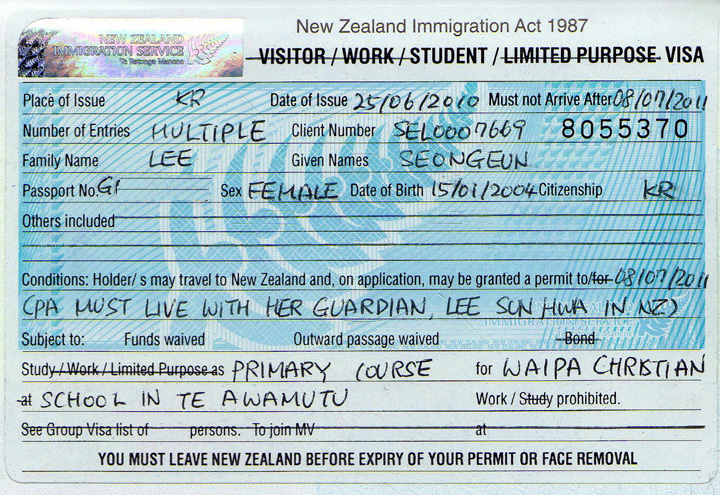 New Zealand Immigration Act 1987
NEW ZEALAND
IMMIGRATION SERVICE
Te Ratonga Manene
VISITOR / WORK / STUDENT / LIMITED PURPOSE VISA
Place of Issue KR Date of Issue 25/06/2010 Must not Arrive After 08/07/2011
Number of Entries MULTIPLE Client Number SEL0007669 8055370
Family Name LEE Given Names SEONGEUN
Passport No. G1 Sex FEMALE Date of Birth 15/01/2004 Citizenship KR
Others included
Conditions: Holder/s may travel to New Zealand and, on application, may be granted a permit to/for 08/07/2011
(PA MUST LIVE WITH HER GUARDIAN, LEE SUN HWA IN NZ)
IMMIGRATION SERVICE
Subject to: Funds waived Outward passage waived Bond
Study / Work / Limited Purpose as PRIMARY COURSE for WAIPA CHRISTIAN
at SCHOOL IN TE AWAMUTU Work / Study prohibited.
See Group Visa list of persons. To join MV at
YOU MUST LEAVE NEW ZEALAND BEFORE EXPIRY OF YOUR PERMIT OR FACE REMOVAL